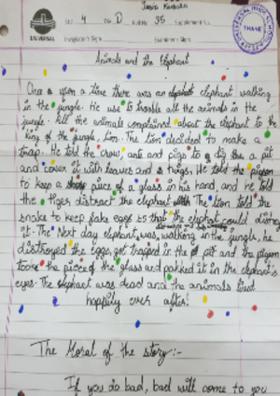 4 D 35
UNIVERSAL
THANE
Animals and the Elephant
Once upon a time there was an elephant walking
in the jungle. He use to trouble all the animals in the
jungle. All the animals complained about the elephant to the
king of the jungle, Lion. The Lion decided to make a
trap. He told the crow, and pigs to dig a pit
and cover it with leaves and things. He told the pigeon
to keep a piece of a glass in his hand, and he told
the Tiger distract the elephant. The Lion told the
snake to keep fake eggs so that the elephant could
it. The Next day elephant was walking in the jungle, he
destroyed the eggs, get trapped in the pit and the pigeon
took the piece of the glass and poked it in the elephant's
eyes. The elephant was dead and the animals lived
happily ever after!
The Moral of the story:-
If you do bad, bad will come to you